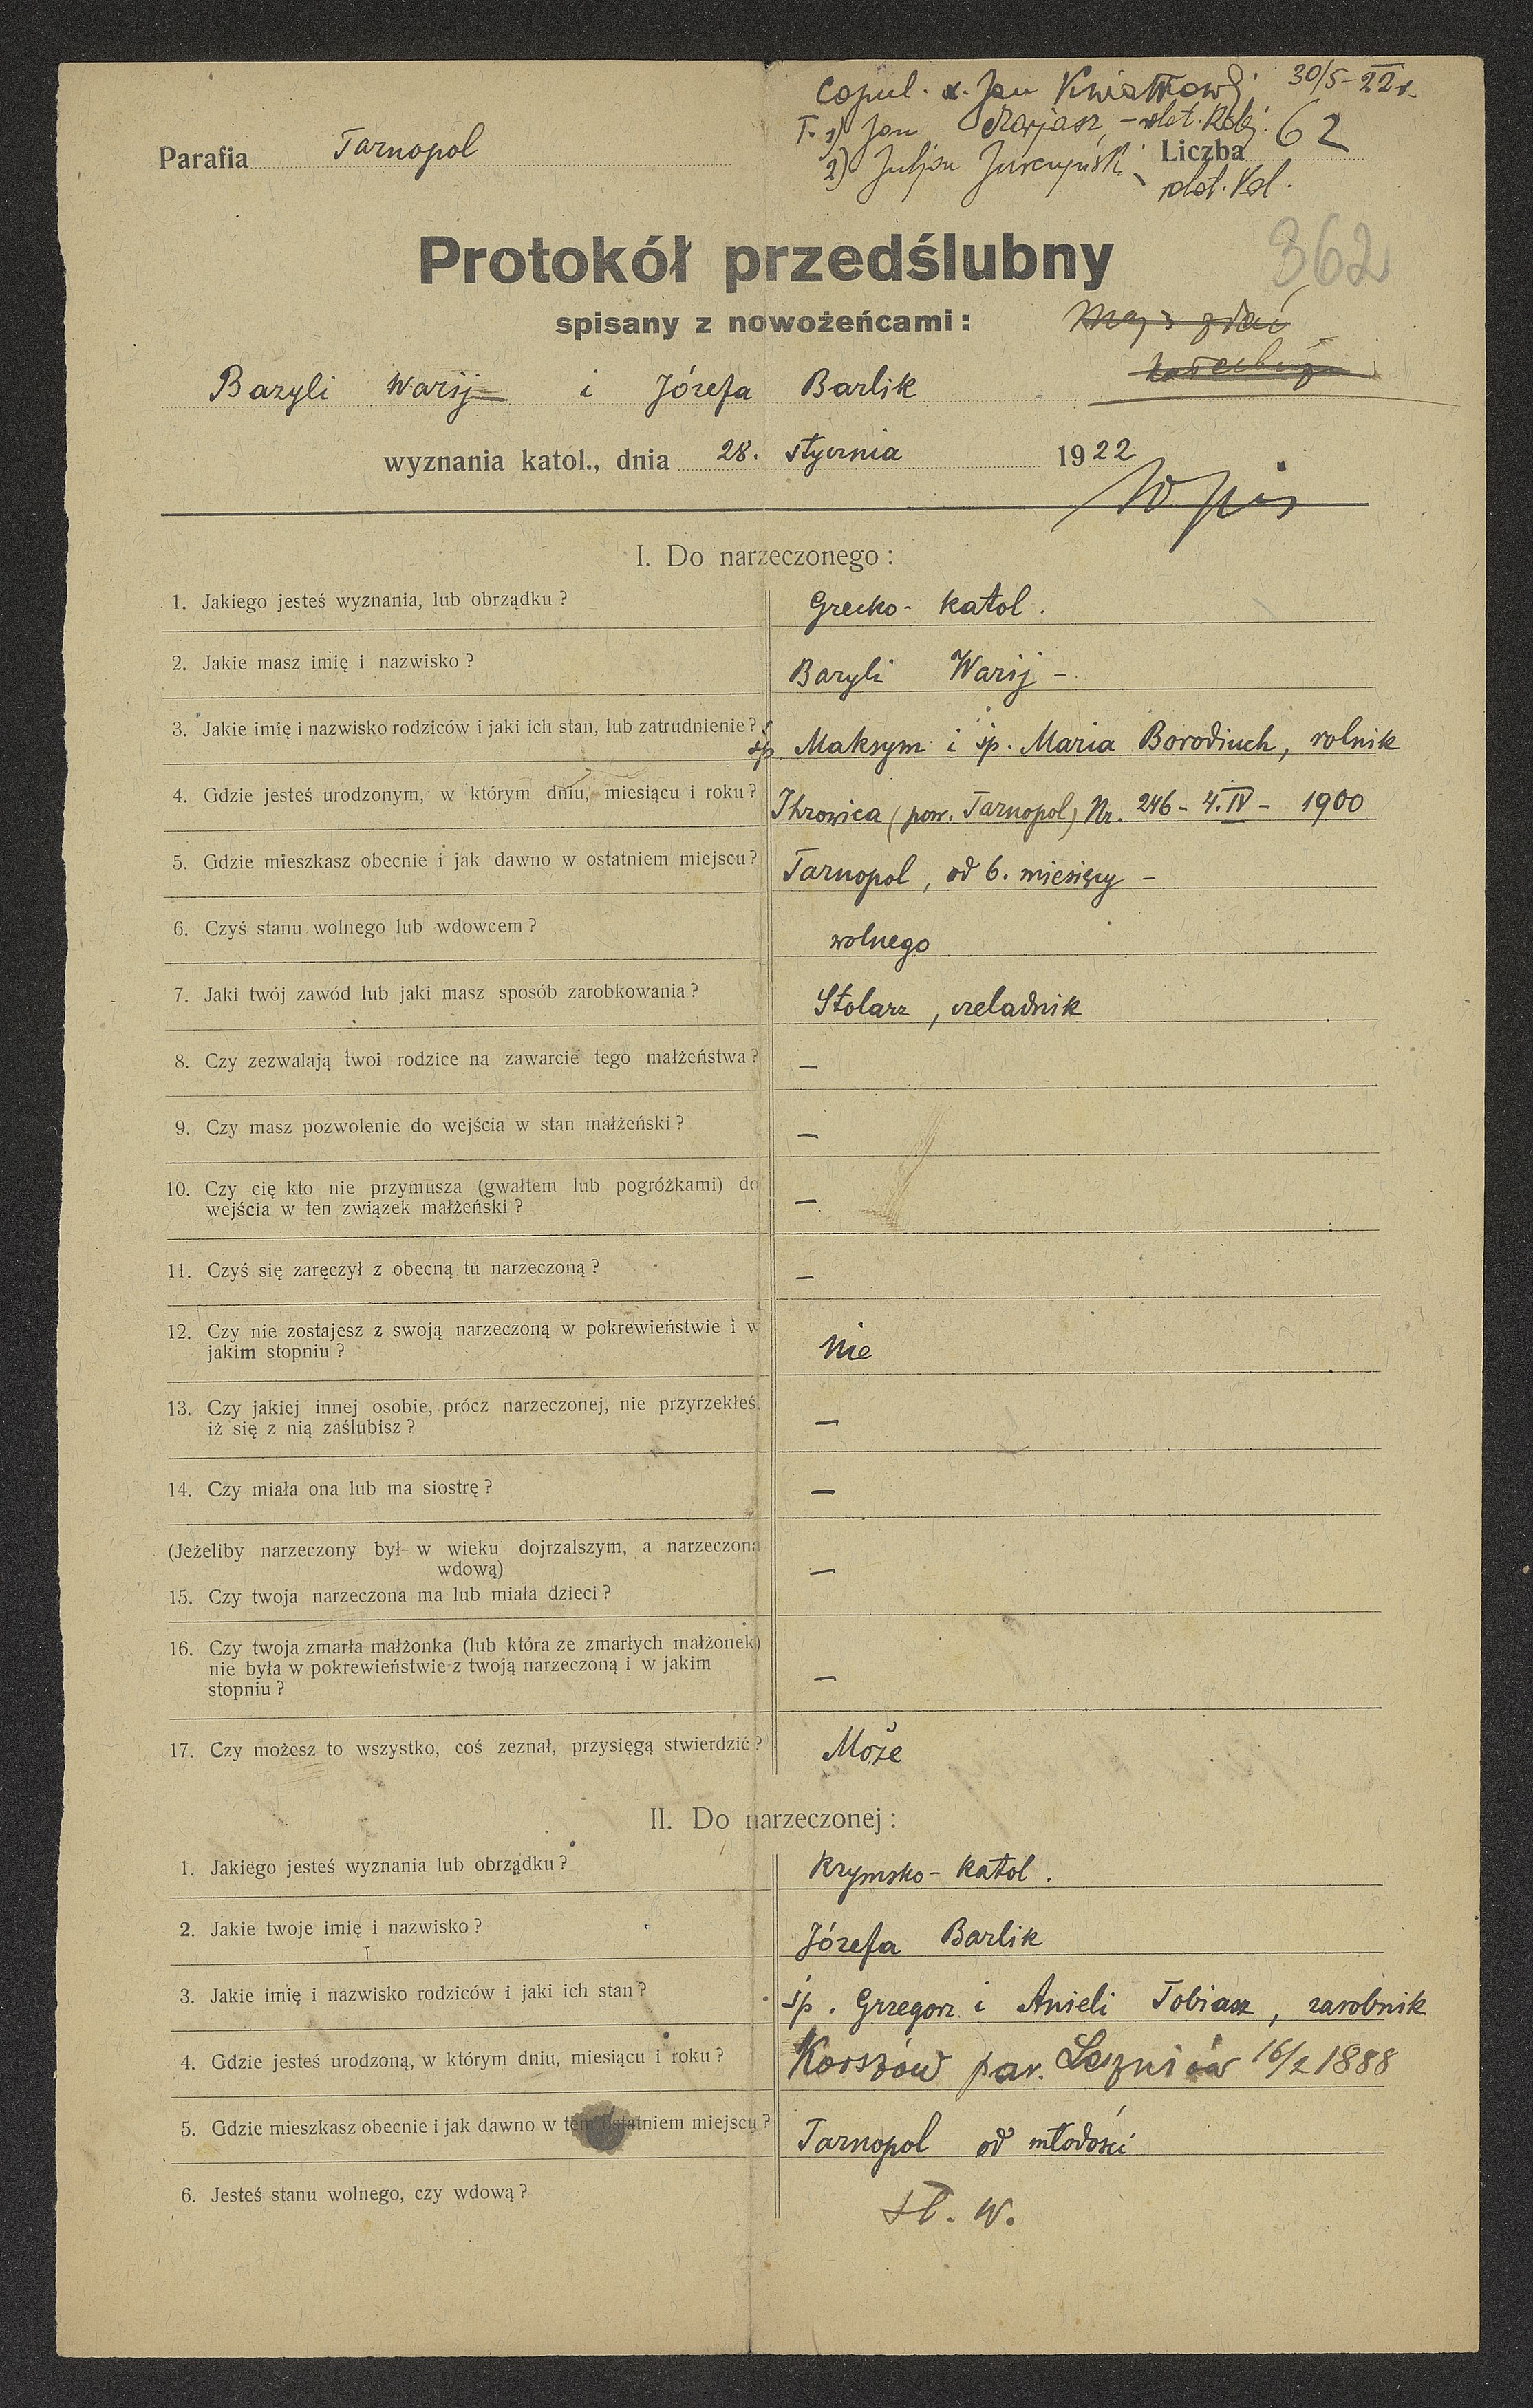 Copul. x. Jan Kwiatkowski 30/5-22 r.
T. 1) Jan Marjasz, – słot. Kolej.
Parafia Tarnopol Liczba 62
2) Juljan Jurczyński –
słot. Kol.
Protokół przedślubny 362
spisany z nowożeńcami:
Bazyli Warij i Józefa Barlik
wyznania katol., dnia 28. stycznia 1922
Wpis
I. Do narzeczonego:
1. Jakiego jesteś wyznania, lub obrządku? Grecko-katol.
2. Jakie masz imię i nazwisko? Bazyli Warij –
3. Jakie imię i nazwisko rodziców i jaki ich stan, lub zatrudnienie? śp. Maksym i śp. Maria Borodiuch, rolnik
4. Gdzie jesteś urodzonym, w którym dniu, miesiącu i roku? Ihrowica (pow. Tarnopol) Nr. 246 – 4.IV – 1900
5. Gdzie mieszkasz obecnie i jak dawno w ostatniem miejscu? Tarnopol, od 6. miesięcy –
6. Czyś stanu wolnego lub wdowcem? wolnego
7. Jaki twój zawód lub jaki masz sposób zarobkowania? Stolarz, czeladnik
8. Czy zezwalają twoi rodzice na zawarcie tego małżeństwa? –
9. Czy masz pozwolenie do wejścia w stan małżeński? –
10. Czy cię kto nie przymusza (gwałtem lub pogróżkami) do
wejścia w ten związek małżeński? –
11. Czyś się zaręczył z obecną tu narzeczoną? –
12. Czy nie zostajesz z swoją narzeczoną w pokrewieństwie i w
jakim stopniu? Nie
13. Czy jakiej innej osobie, prócz narzeczonej, nie przyrzekłeś,
iż się z nią zaślubisz? –
14. Czy miała ona lub ma siostrę? –
(Jeżeliby narzeczony był w wieku dojrzalszym, a narzeczona
wdową) –
15. Czy twoja narzeczona ma lub miała dzieci?
16. Czy twoja zmarła małżonka (lub która ze zmarłych małżonek)
nie była w pokrewieństwie z twoją narzeczoną i w jakim
stopniu? –
17. Czy możesz to wszystko, coś zeznał, przysięgą stwierdzić? Może
II. Do narzeczonej:
1. Jakiego jesteś wyznania lub obrządku? Rzymsko-katol.
2. Jakie twoje imię i nazwisko? Józefa Barlik
3. Jakie imię i nazwisko rodziców i jaki ich stan? śp. Grzegorz i Anieli Tobiasz, zarobnik
4. Gdzie jesteś urodzoną, w którym dniu, miesiącu i roku? Korszów par. Leszniów 16/2 1888
5. Gdzie mieszkasz obecnie i jak dawno w tem ostatniem miejscu? Tarnopol od młodości
6. Jesteś stanu wolnego, czy wdową? st. w.